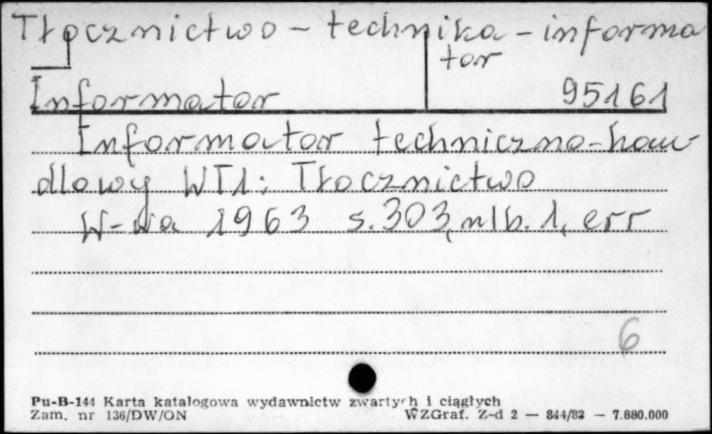 Tłocznictwo - technika - informa
tor
Informator 95161
Informator techniczno-han-
dlowy WT1: Tłocznictwo
W-wa 1963 s. 303, nlb. 1, err
6
Pu-B-144 Karta katalogowa wydawnictw zwartych i ciągłych
Zam. nr 136/DW/ON WZGraf. Z-d 2 — 844/82 — 7.880.000